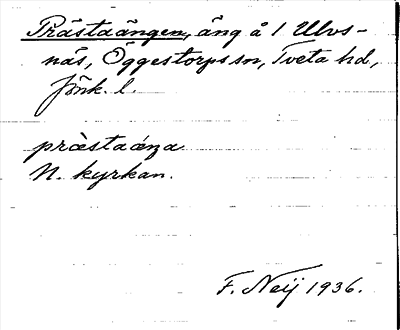 Prästaängen, äng å 1 Ulvs-
näs, Öggestorps sn, Tveta hd,
Jönk. l.
prȁstaáŋa
N. kyrkan.
F. Neij 1936.